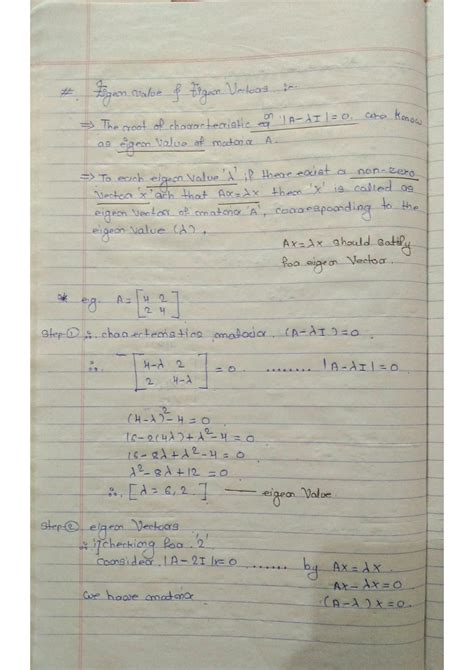 #. Eigen value & Eigen Vectors :-
⇒ The root of characteristic eqn |A-λI|=0. are Known
as eigen value of matrix A.
⇒ To each eigen value 'λ', if there exist a non-zero
Vector 'x' such that Ax=λx then 'x' is called as
eigen vector of matrix 'A', corresponding to the
eigen value (λ).
Ax=λx should satisfy
for eigen Vector.
* eg. A = [4 2
2 4]
Step ① ∴ charecteristics matrix. (A-λI)=0.
∴ [4-λ 2
2 4-λ] = 0 ........ |A-λI|=0
(4-λ)²-4=0
16-2(4λ)+λ²-4=0
16-8λ+λ²-4=0
λ²-8λ+12=0
∴ [λ=6,2.] — eigen Value
Step ② eigen Vectors
∴ checking for '2'
consider |A-2I|x=0 ....... by Ax=λx.
Ax-λx=0
we have matrix (A-λ)x=0.